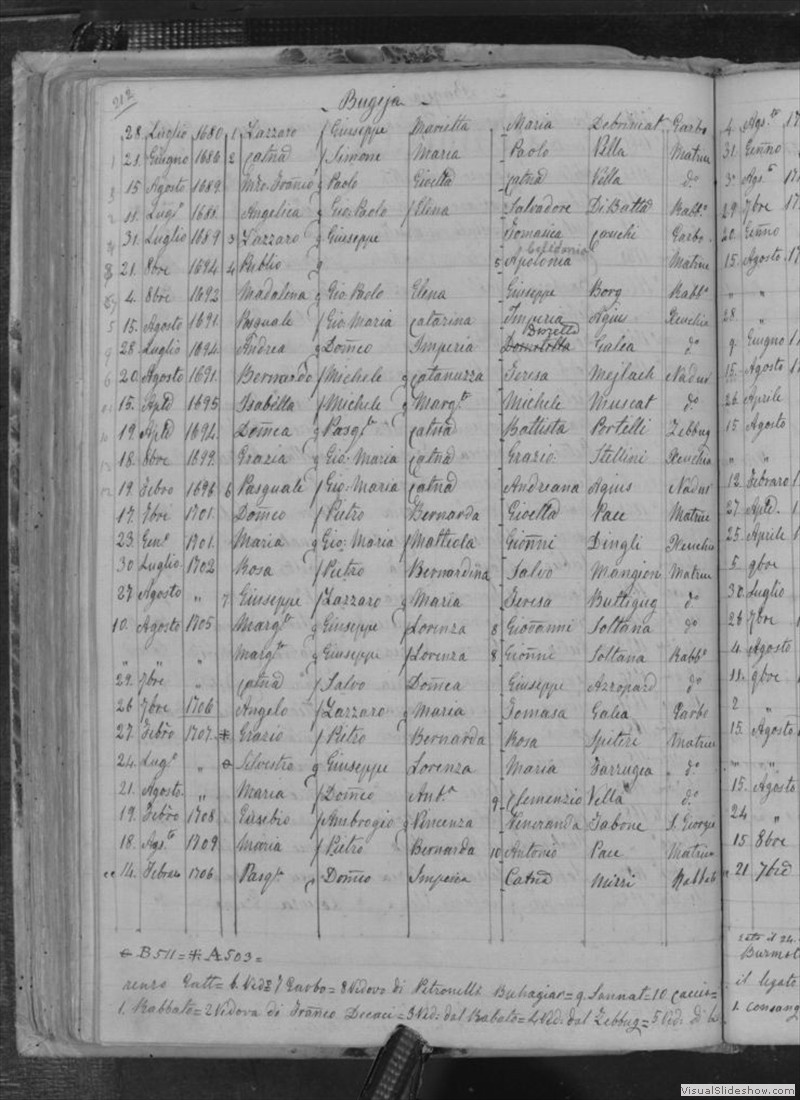 212
Bugeja
28. Luglio 1680 1 Lazzaro f Giuseppe Marietta Maria Garbo 4. Ags.to 17
21. Giugno 1686 2 Catnd f Simone Maria Paolo Vella Matrice 31. Genno
15 Agosto 1689. Paolo Gioetta Catnd Vella do 3. Ags.to 17
11. Lugo 1688. Angelica g Gio. Paolo f Elena Salvadore DiBatta Rabb.o 29. 7bre
31. Luglio 1689 3 Lazzaro g Giuseppe Tomasica Cauchi Garbo. 20. Genno
21. 8bre 1694 4 Publio g 5 Apolonia Matrice 15. Agosto 17
4. 8bre 1692 Madalena g Gio Paolo Elena Giuseppe Borg Rabb.o " "
15. Agosto 1691. Pasquale f Gio. Maria Catarina Imperia Agius Xeuchia 28. "
28. Luglio 1694. Andrea g Domco Imperia Galea do 9. Giugno
20. Agosto 1691. Bernardo f Michele g Catanuzza Teresa Mejlach Nadur 15. Agosto
15. Aple 1695 Isabella f Michele g Marg.ta Michele Muscat do 26. Aprile
19. Aple 1694. Domca g Pasq.le Catnd Battista Portelli Zebbug 15. Agosto
18. 8bre 1699. Grazia g Gio. Maria Catnd Grazio Stellini Xeuchia " "
19. Febro 1696 6 Pasquale f Gio. Maria Catnd Andreana Agius Nadur 12. Febraro 1
17. 7bre 1701. Domco f Pietro Bernarda Gioetta Pace Matrice 27. Aple
23. Gen.o 1701. Maria g Gio. Maria f Mattiola Gionni Dingli Xeuchia 25. Aprile
30 Luglio 1702 Rosa f Pietro Bernardina Salvo Mangion Matrice 5. 9bre
27 Agosto " 7 Giuseppe f Lazzaro g Maria Teresa Buttigieg do 30. Luglio
10. Agosto 1705 Marg.ta g Giuseppe f Lorenza 8 Giovanni Soltana do 26 7bre
" " Marg.ta g Giuseppe f Lorenza 8 Gionni Soltana Rabb.o 4. Agosto
29. 7bre " Catnd f Salvo Domca Giuseppe Azzopard do 11. 9bre
26 7bre 1706 Angelo f Lazzaro g Maria Tomasa Galea Garbo 2 "
27. Febro 1707. * Grazio f Pietro Bernarda Rosa Spiteri Matrice 15. Agosto
24. Lug.o " Silvestro g Giuseppe Lorenza Maria Farrugia do " "
21. Agosto " Maria f Domco Ant.a 9 Clemenzio Vella do 15. Agosto
19. Febro 1708 Eusebio f Ambrogio g Vincenza Veneranda Tabone S. Georgio 24 "
18. Ags.to 1709 Maria f Pietro Bernarda 10 Antonio Pace Matrice 15 8bre
14. Febraro 1706 Pasq.le Domco Imperia Catnd Mizzi Rabbato 21 7bre
B 511 = * A 503 =
renzo Gatt = 6. Ved = 7 Garbo = 8 Vidova di Petronilla Buhagiar = 9. Sannat = 10 Caccia =
1. Rabbato = 2 Vidova di Franco = 3 Ved. dal Rabato = 4 Ved. dal Zebbug = 5 Ved. di
il 24.
il legato
1. consang
VisualSlideshow.com